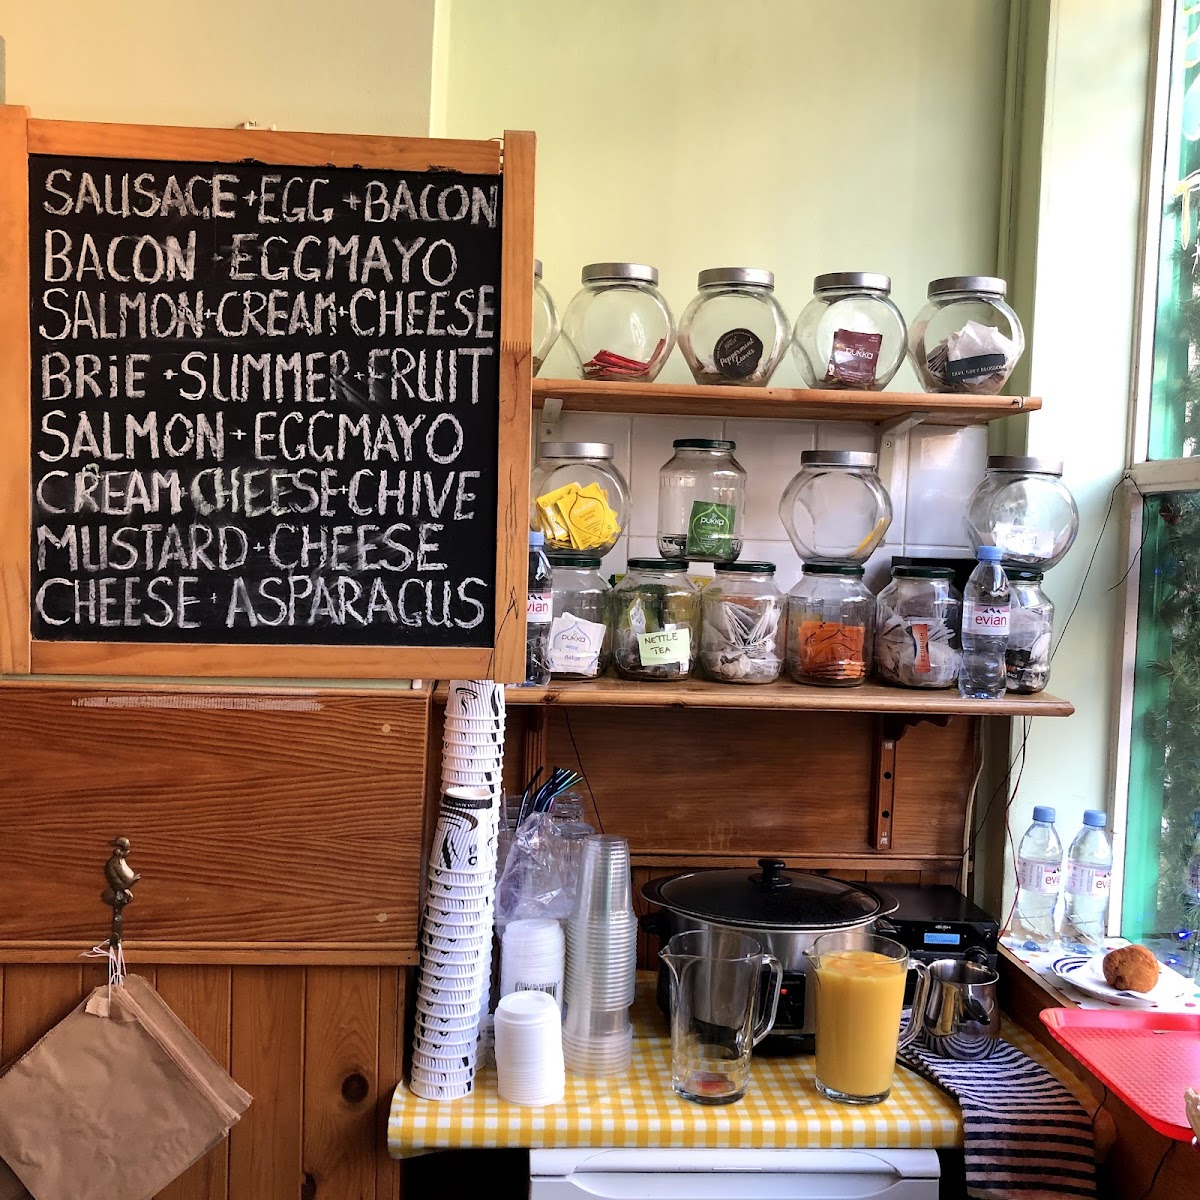 SAUSAGE + EGG + BACON
BACON - EGGMAYO
SALMON + CREAM + CHEESE
BRiE + SUMMER + FRUIT
SALMON + EGGMAYO
CREAM + CHEESE + CHIVE
MUSTARD + CHEESE
CHEESE + ASPARAGUS
Peppermint
Leaves
pukka
EARL GREY BLOSSOM
pukka
pukka
detox
NETTLE
TEA
evian
evian
evian
evian
BUSH